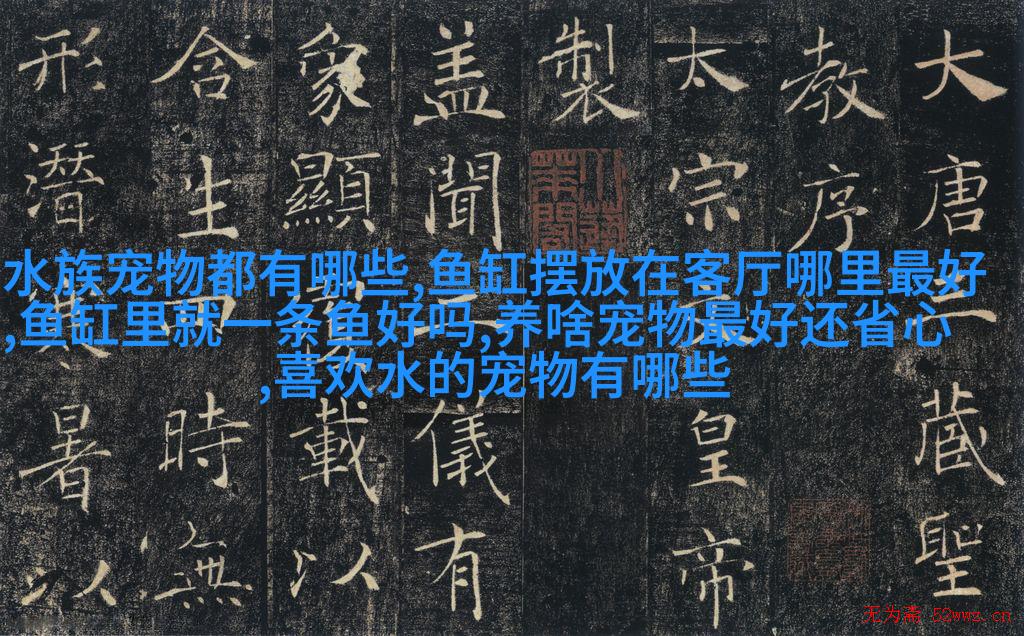 大唐三藏聖
教序
太宗皇帝
製
盖聞二儀有
象顯載以
含生四時無
形潛暑以
水族宠物都有哪些,鱼缸摆放在客厅哪里最好
,鱼缸里就一条鱼好吗,养啥宠物最好还省心
,喜欢水的宠物有哪些
无为斋 52wwz.cn